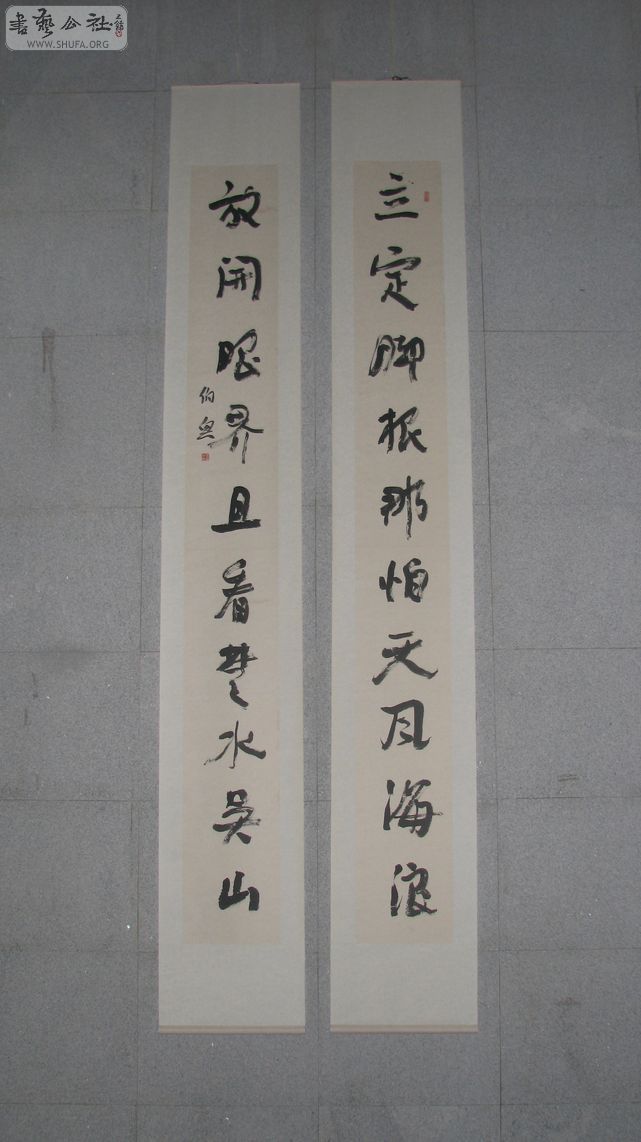 立定脚根那怕天风海浪
放開眼界且看楚水吴山
伯魚
書藝公社
WWW.SHUFA.ORG